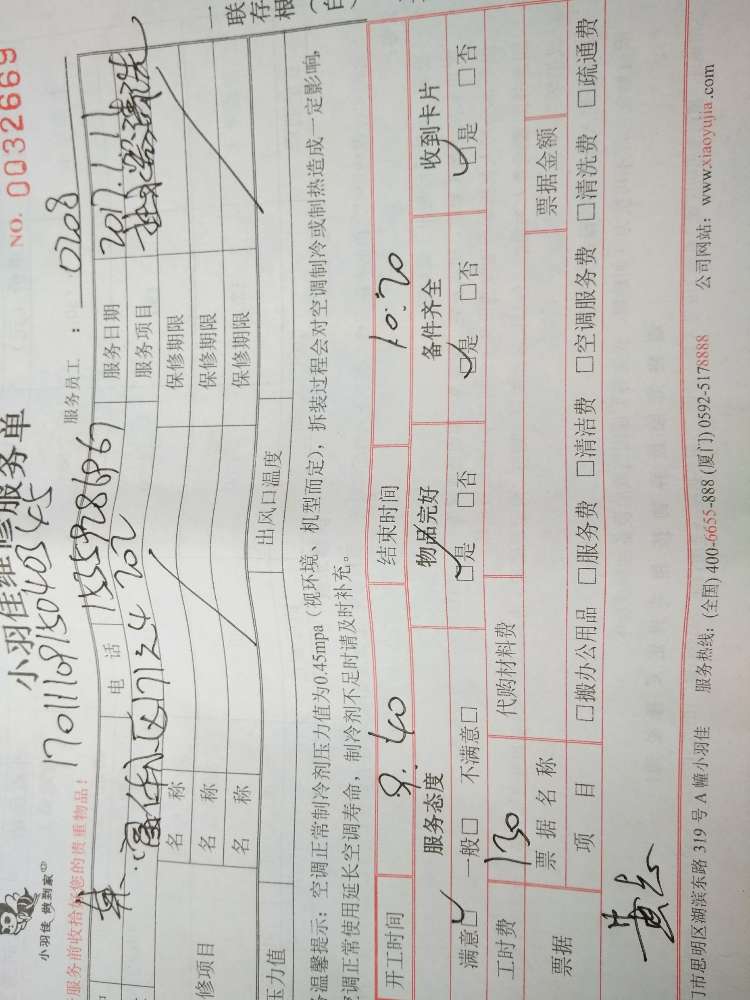 小羽佳 做到家
小羽佳维修服务单
NO. 0032669
一联存根
服务前收拾好您的贵重物品！
1701110915040345
服务员工：0208
电 话 15559286967
服务日期 2017.1.11
服务项目
修项目
名 称
保修期限
名 称
保修期限
名 称
保修期限
压力值
出风口温度
温馨提示：空调正常制冷剂压力值为0.45mpa（视环境、机型而定），拆装过程会对空调制冷或制热造成一定影响，
空调正常使用延长空调寿命，制冷剂不足时请及时补充。
开工时间 9:40 结束时间 10:20
服务态度 物品完好 备件齐全 收到卡片
满意□ 一般□ 不满意□ □是 □否 □是 □否 □是 □否
工时费 130 代购材料费
票据 票据名称 票据金额
项 目 □搬办公用品 □服务费 □清洁费 □空调服务费 □清洗费 □疏通费
门市思明区湖滨东路 319 号 A 幢小羽佳 服务热线：(全国) 400-6655-888 (厦门) 0592-5178888 公司网站：www.xiaoyujia.com